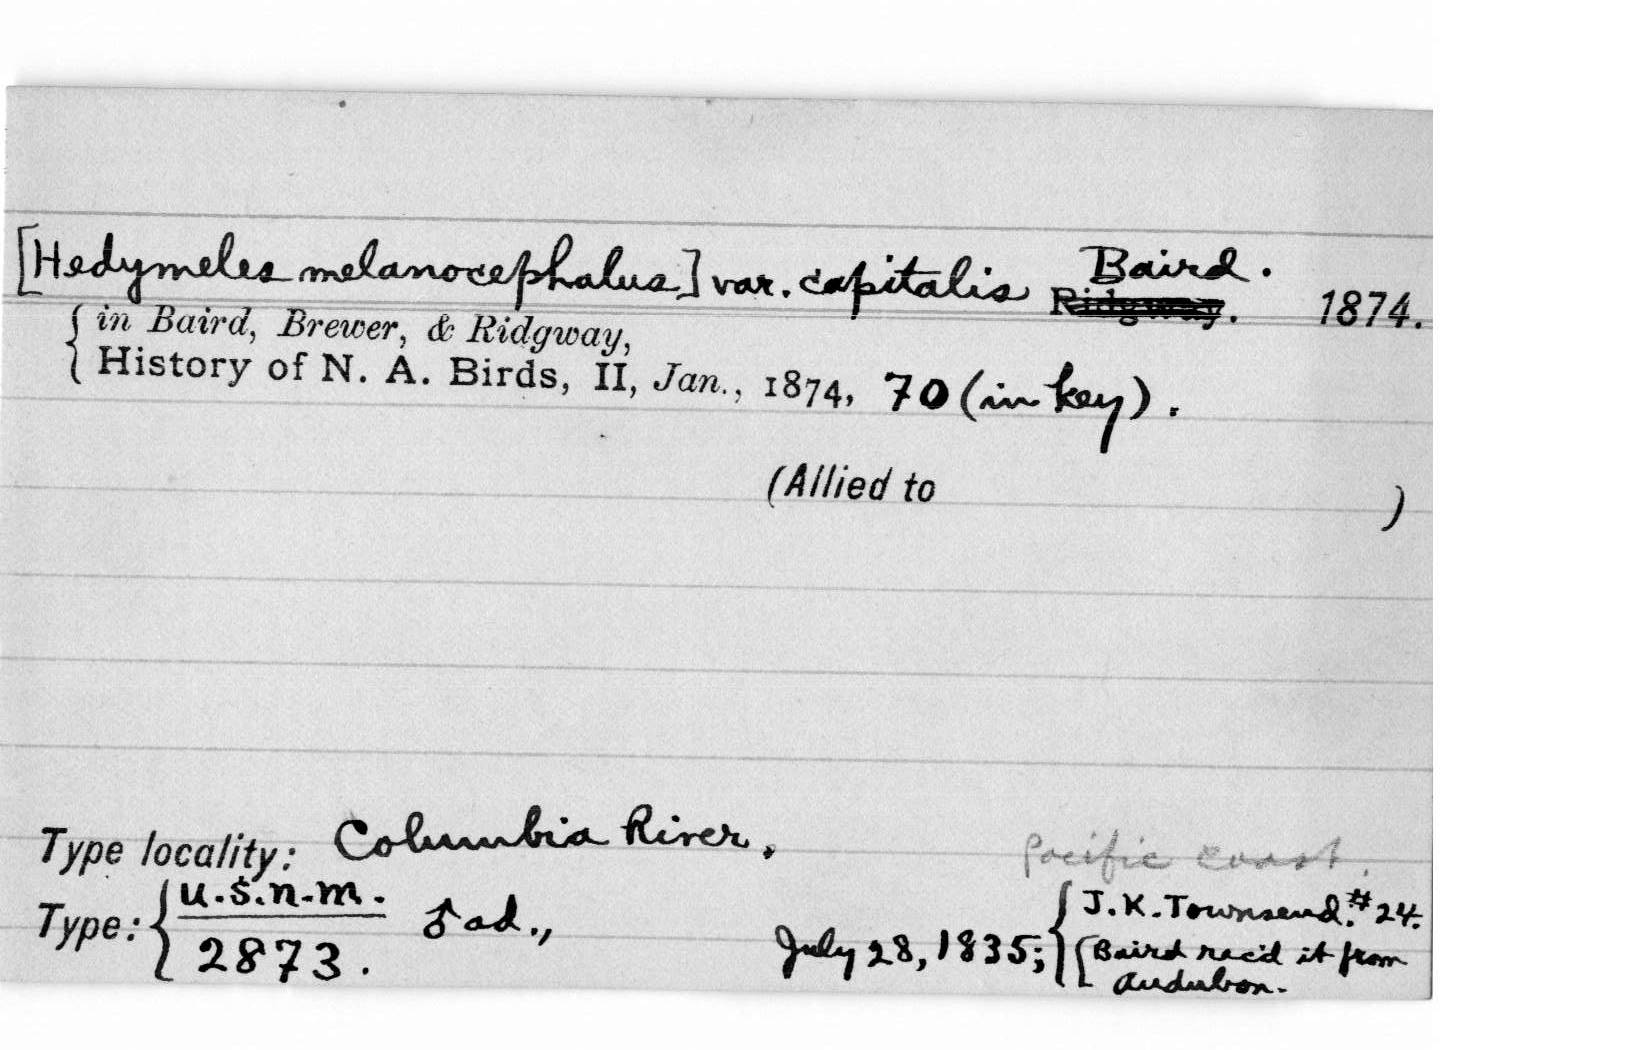 [Hedymeles melanocephalus] var. capitalis Baird.
Ridgway. 1874.
in Baird, Brewer, & Ridgway,
History of N. A. Birds, II, Jan., 1874, 70 (in key).
(Allied to )
Type locality: Columbia River, Pacific Coast.
Type: U.S.N.M. ♂ ad., J.K. Townsend. #24.
2873. July 28, 1835; [Baird rec'd it from
Audubon.